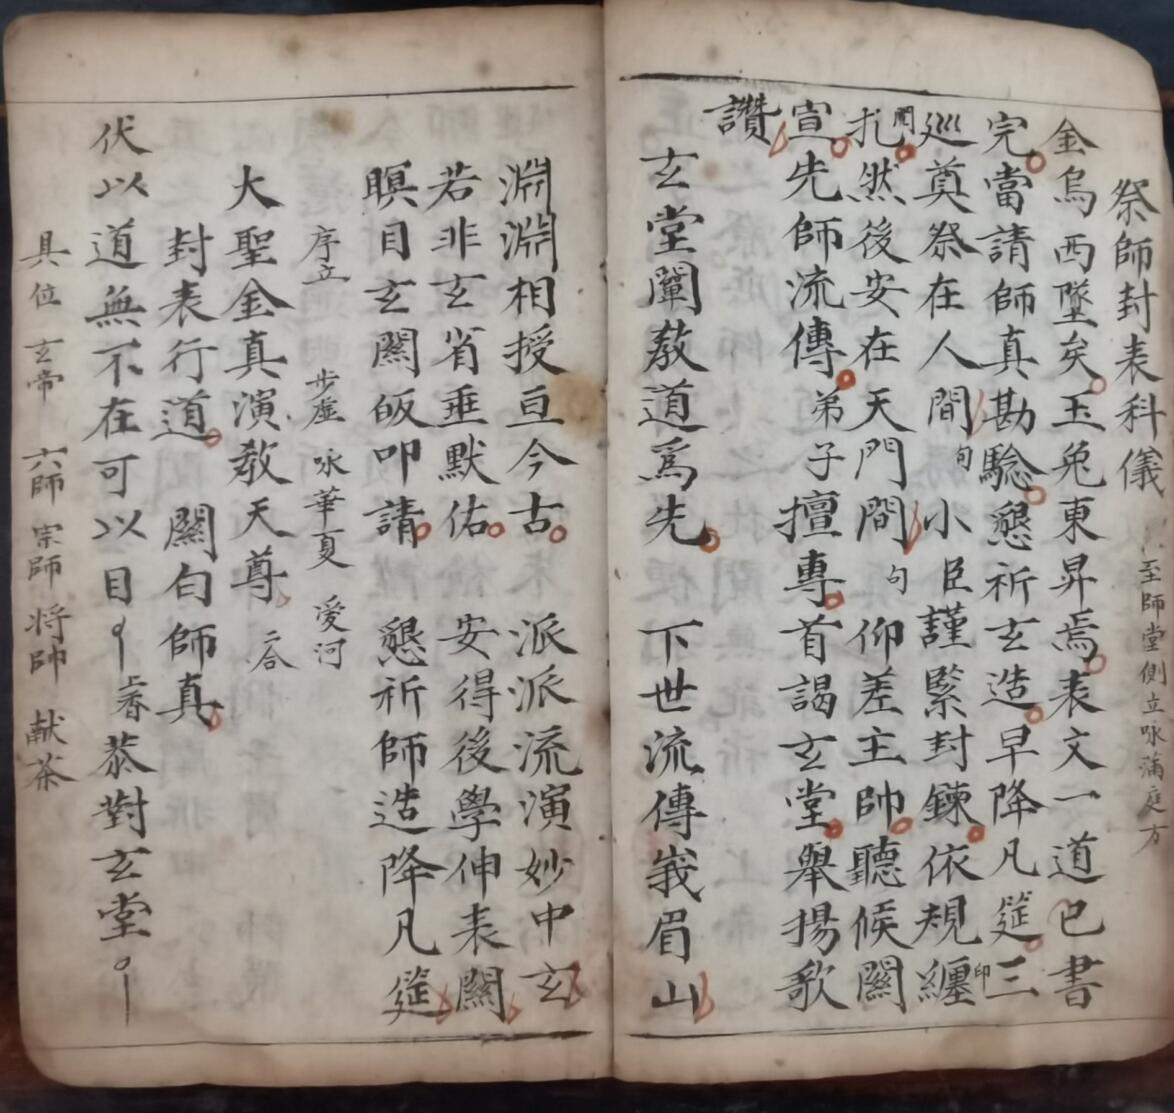 祭師封表科儀 至師堂側立咏滿庭方
金烏西墜矣玉兔東昇焉表文一道已書
完當請師真勘驗懇祈玄造早降凡筵三
巡奠祭在人間句小臣謹緊封鍊依規纏印
扎閞然後安在天門間句仰差主帥聽候関
宣先師流傳弟子擅專首謁玄堂舉揚歌
讚
玄堂闡教道為先 下世流傳峩眉山
淵淵相授亘今古 派派流演妙中玄
若非玄省垂默佑 安得後學伸表関
瞑目玄関皈叩請 懇祈師造降凡筵
序立 步虛 咏華夏 愛河
大聖金真演教天尊 二合
封表行道 関白師真
伏以道無不在可以目 上香 恭對玄堂
具位 玄帝 六師 宗師 将帥 献茶